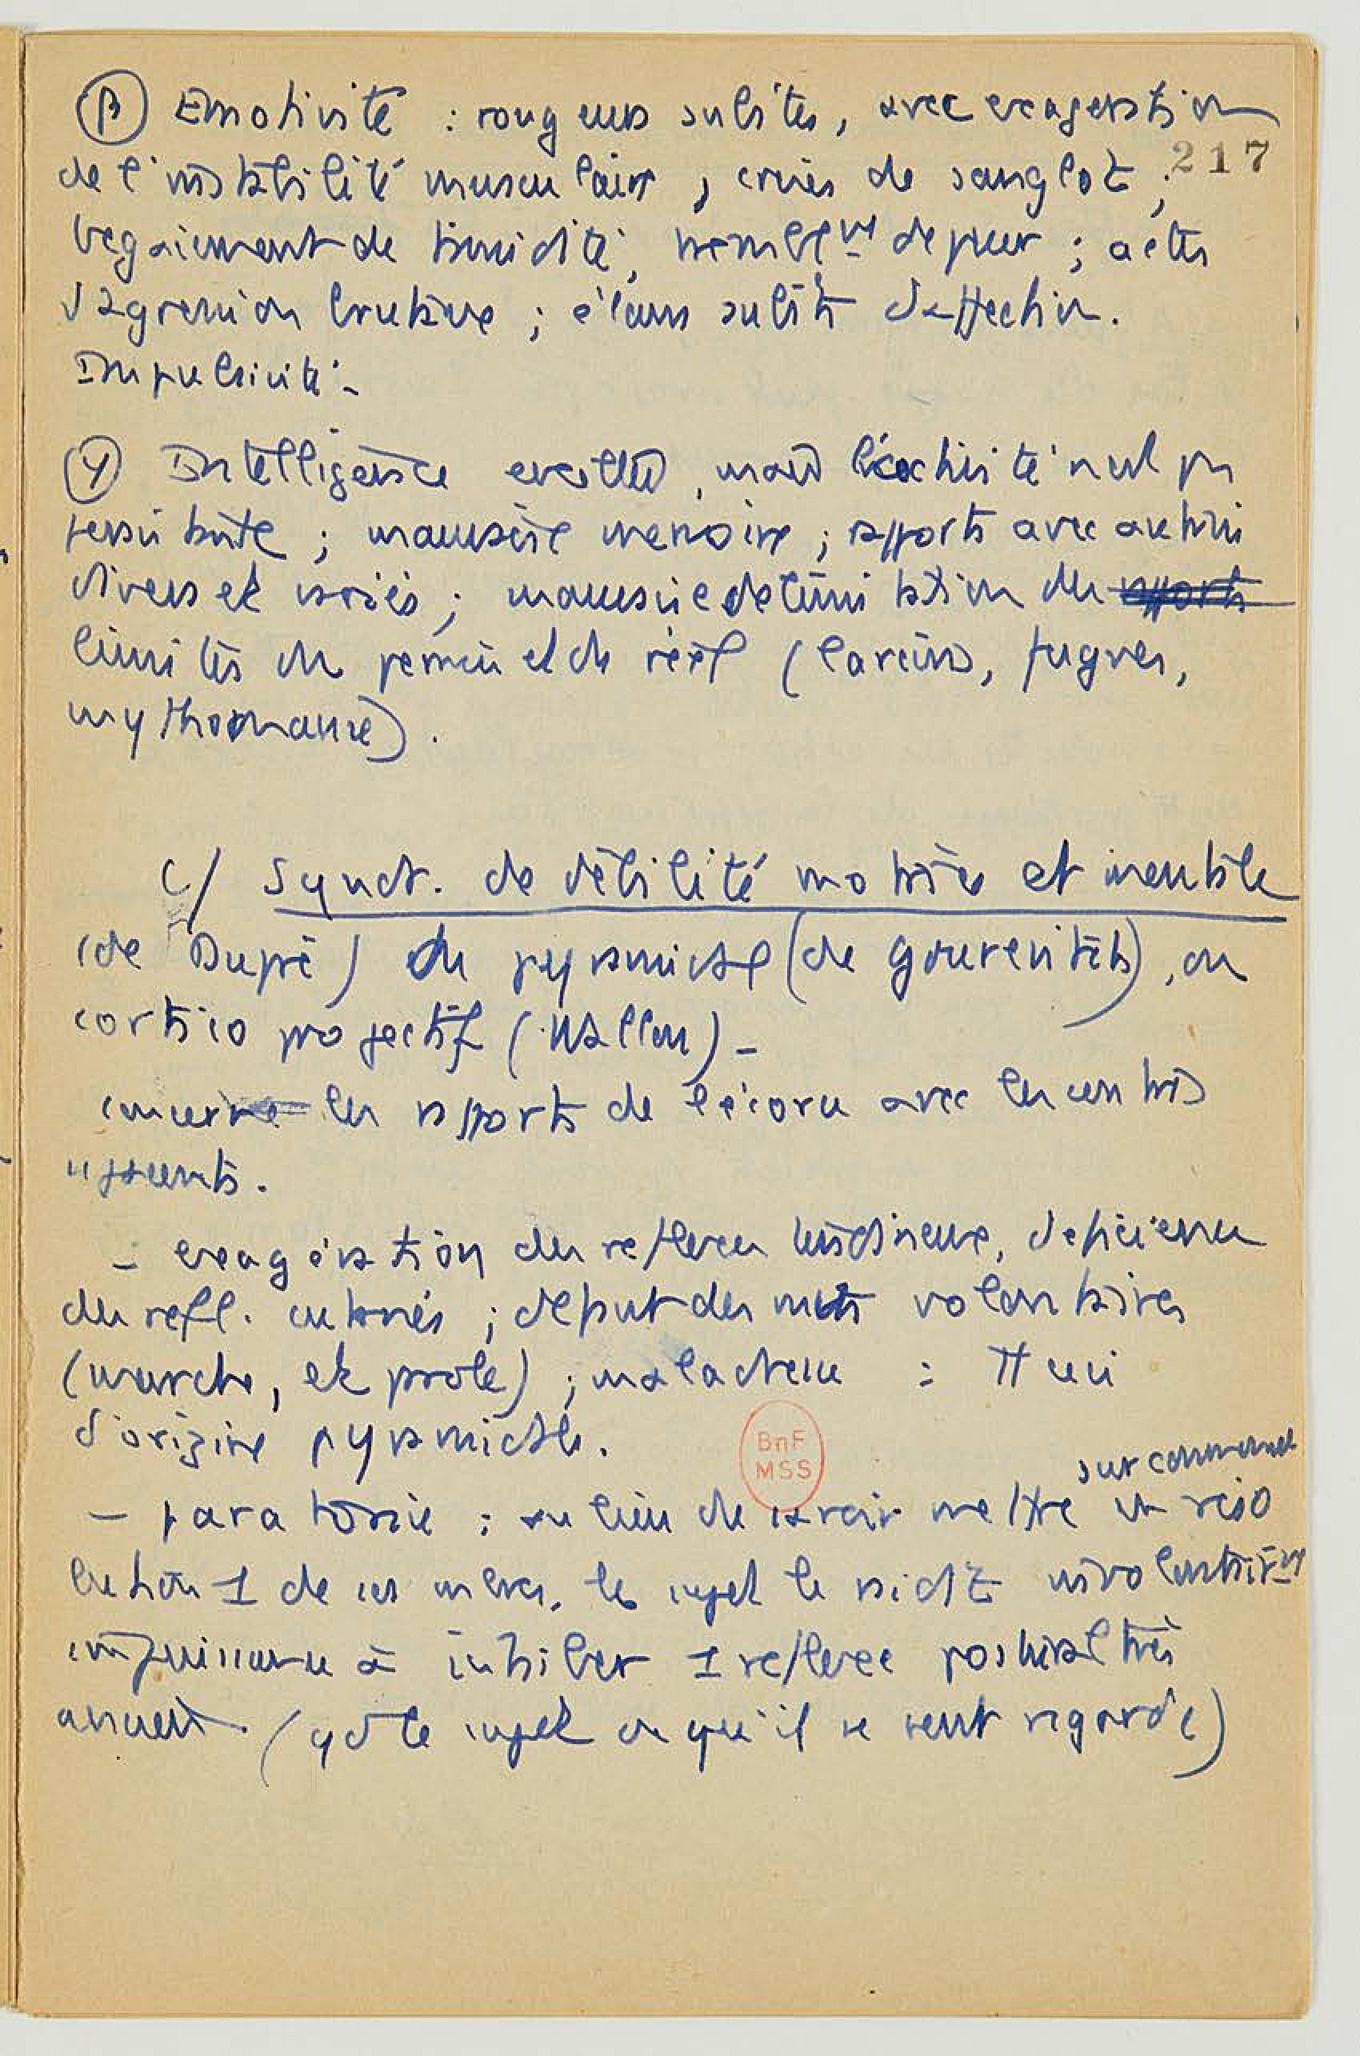 β Emotivité : rougeurs subites, avec exagération
217
de l'instabilité musculaire ; crises de sanglot ;
begaiement de timidité, trembl^nt de peur ; actes
d'agression brutaux ; élans subits d'affection.
Impulsivité.-
γ Intelligence mais l'activité nul
; mauvaise memoire ; rapports avec autrui
divers et variés ; mauvaise delimitation des rapports
limites du permis et du réel (larcins, fugues,
mythomanie).
c/ Synd. de débilité motrice et mentale
(de Dupré) ou pyramidal (de Gourevitch), ou
cortico projectif (Wallon) -
concerne les rapports de l'écorce avec les centres
- exagération des reflexes tendineux, deficience
des refl. cutanés ; des mvts volontaires
(marche, et parole) ; maladresse :
d'origine pyramidale.
sur commande
- paratonie : au lieu de savoir mettre en réso
lution 1 de ses mbres, le sujet le raidit involontair^nt
impuissance à inhiber 1 reflexe postural très
ancien. (qd le sujet ou qu'il se sent regardé)
BnF
MSS